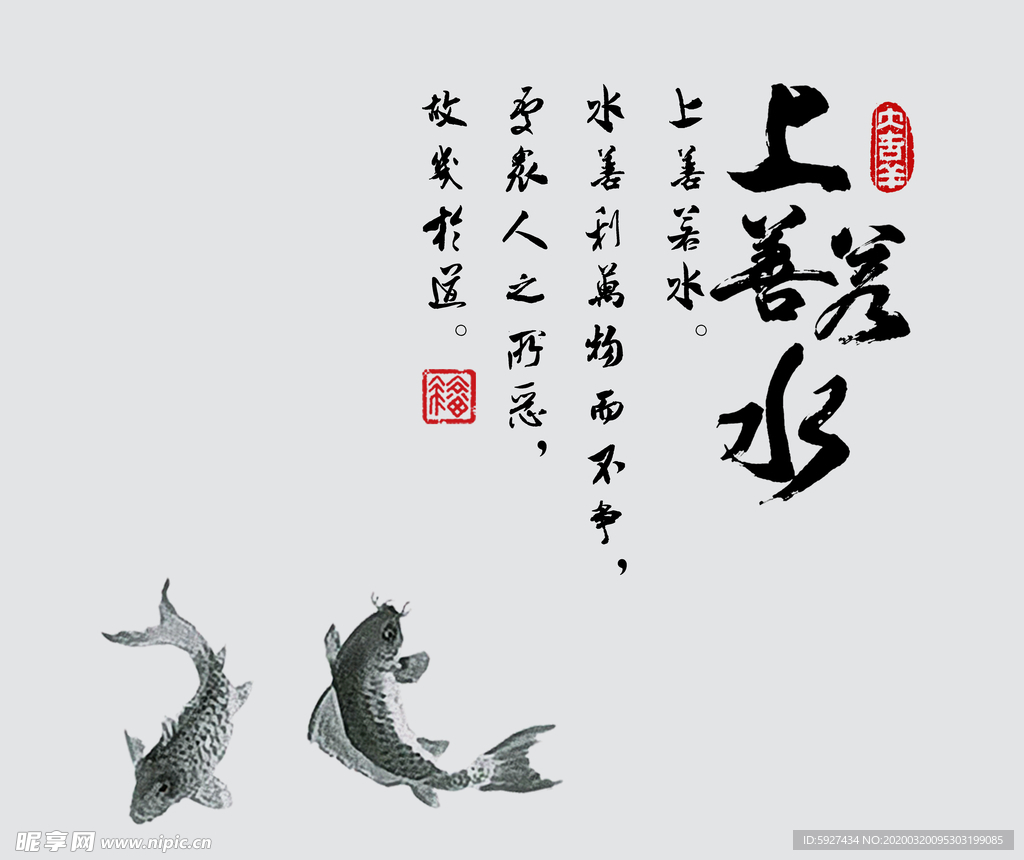 上善若水
大吉羊
上善若水。
水善利萬物而不争，
處衆人之所惡，
故幾於道。
福
昵享网 www.nipic.cn
ID:5927434 NO:20200320095303199085